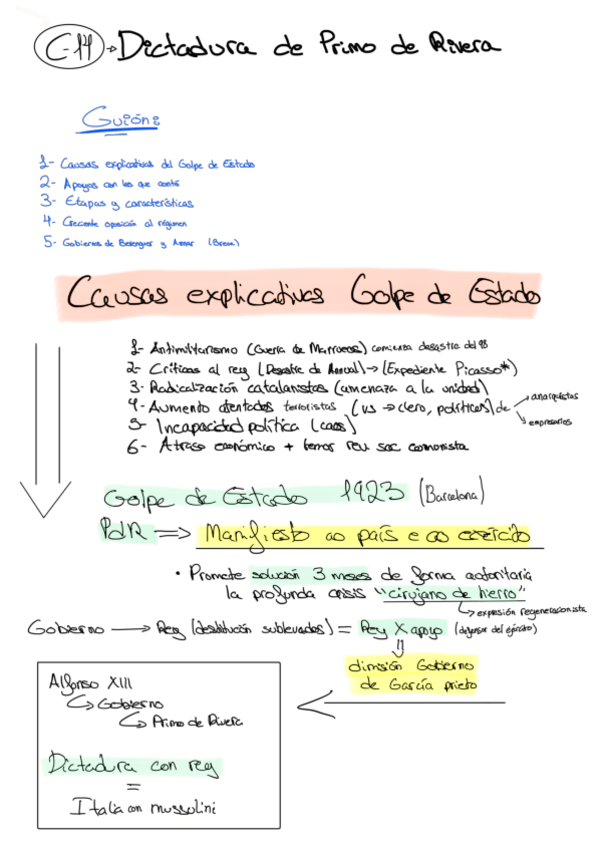 C-14 → Dictadura de Primo de Rivera
Guión:
1- Causas explicativas del Golpe de Estado
2- Apoyos con los que contó
3- Etapas y características
4- Creciente oposición al régimen
5- Gobiernos de Berenguer y Aznar (Breve)
Causas explicativas Golpe de Estado
1- Antimilitarismo (Guerra de Marruecos) comienza desastre del 98
2- Críticas al rey (Desastre de Annual) → (Expediente Picasso*)
3- Radicalización catalanistas (amenaza a la unidad)
4- Aumento atentados terroristas (vs → clero, políticos) de → anarquistas
↘ empresarios
5- Incapacidad política (caos)
6- Atraso económico + temor rev soc comunista
Golpe de Estado 1923 (Barcelona)
PdR ⇒ Manifiesto ao país e ao exército
• Promete solución 3 meses de forma autoritaria
la profunda crisis "cirujano de hierro"
↳ expresión regeneracionista
Gobierno → Rey (destitución sublevados) = Rey X apoyo (defensor del ejército)
⇓
dimisión Gobierno
de García prieto
Alfonso XIII
↳ Gobierno
↳ Primo de Rivera
Dictadura con rey
=
Italia con mussolini